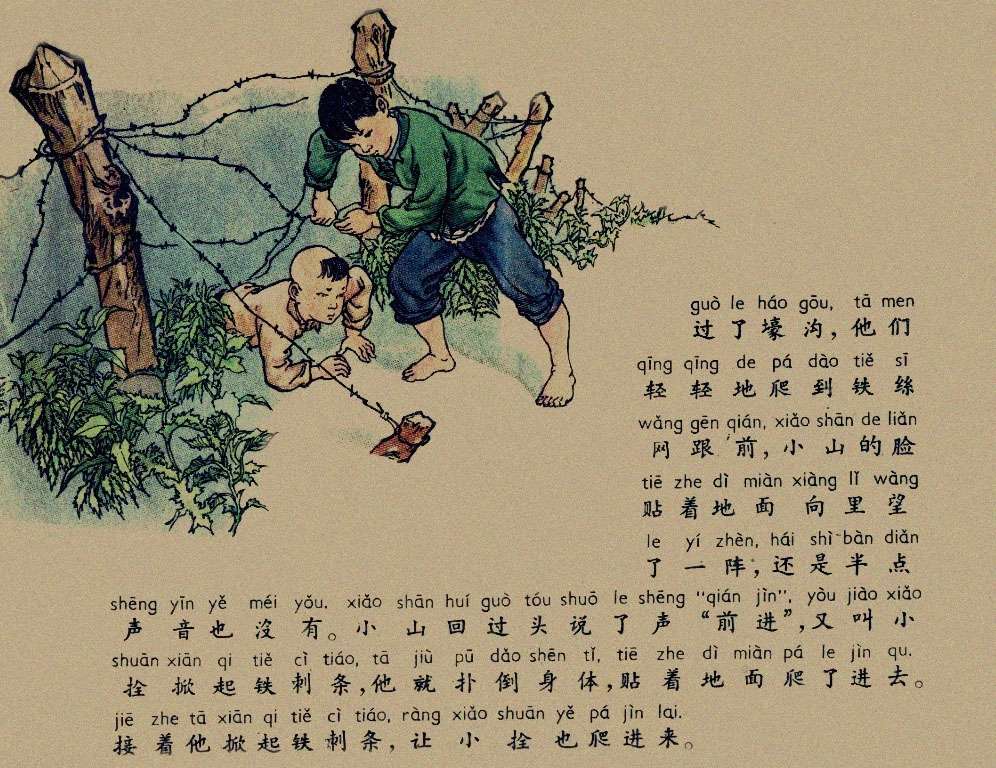 guò le háo gōu, tā men
过了壕沟,他们
qīng qīng de pá dào tiě sī
轻轻地爬到铁丝
wǎng gēn qián, xiǎo shān de liǎn
网跟前,小山的脸
tiē zhe dì miàn xiàng lǐ wàng
贴着地面向里望
le yí zhèn, hái shì bàn diǎn
了一阵,还是半点
shēng yīn yě méi yǒu. xiǎo shān huí guò tóu shuō le shēng "qián jìn", yòu jiào xiǎo
声音也沒有。小山回过头说了声“前进”,又叫小
shuān xiān qi tiě cì tiáo, tā jiù pū dǎo shēn tǐ, tiē zhe dì miàn pá le jìn qu.
拴掀起铁刺条,他就扑倒身体,贴着地面爬了进去。
jiē zhe tā xiān qi tiě cì tiáo, ràng xiǎo shuān yě pá jìn lai.
接着他掀起铁刺条,让小拴也爬进来。